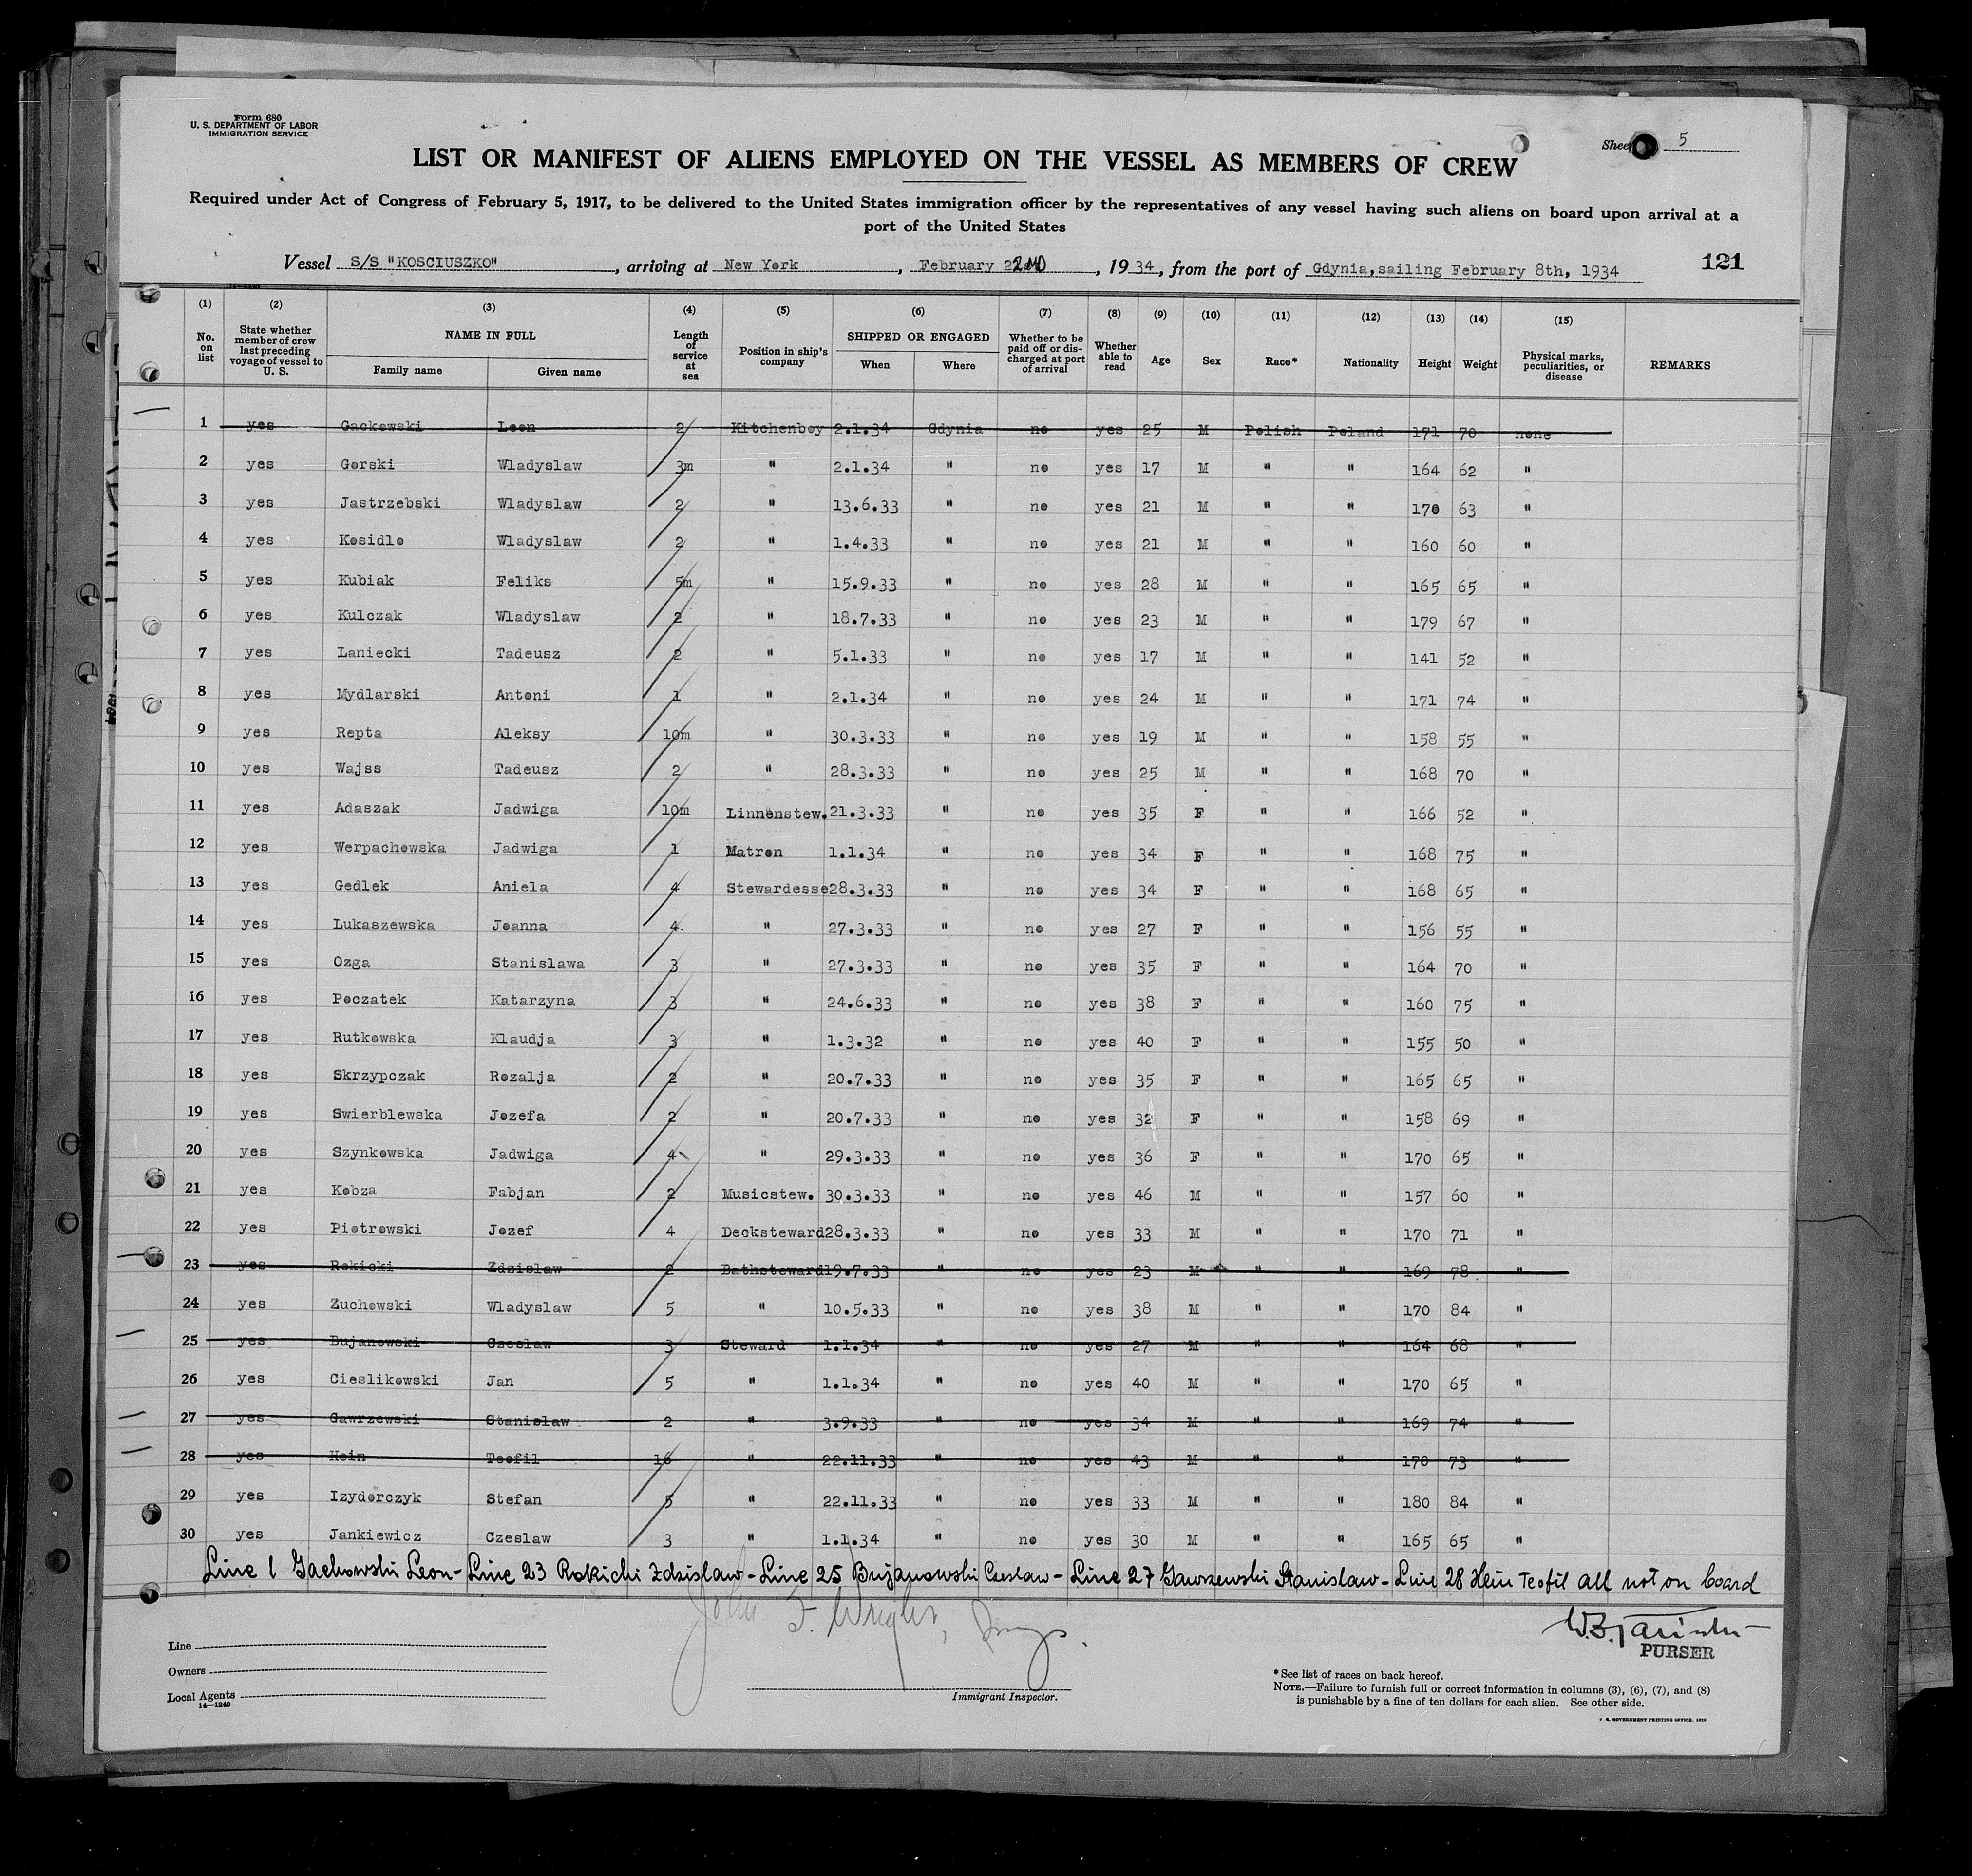 Form 680
U. S. DEPARTMENT OF LABOR
IMMIGRATION SERVICE
Sheet 5
LIST OR MANIFEST OF ALIENS EMPLOYED ON THE VESSEL AS MEMBERS OF CREW
Required under Act of Congress of February 5, 1917, to be delivered to the United States immigration officer by the representatives of any vessel having such aliens on board upon arrival at a
port of the United States
Vessel S/S "KOSCIUSZKO", arriving at New York, February 22ND, 1934, from the port of Gdynia, sailing February 8th, 1934 121
(1) (2) (3) (4) (5) (6) (7) (8) (9) (10) (11) (12) (13) (14) (15)
No. on list State whether member of crew last preceding voyage of vessel to U. S. NAME IN FULL Family name Given name Length of service at sea Position in ship's company SHIPPED OR ENGAGED When Where Whether to be paid off or discharged at port of arrival Whether able to read Age Sex Race* Nationality Height Weight Physical marks, peculiarities, or disease REMARKS
1 yes Gackowski Leon 2 Kitchenboy 2.1.34 Gdynia no yes 25 M Polish Poland 171 70 none
2 yes Gorski Wladyslaw 3m " 2.1.34 " no yes 17 M " " 164 62 "
3 yes Jastrzebski Wladyslaw 2 " 13.6.33 " no yes 21 M " " 170 63 "
4 yes Kosidlo Wladyslaw 2 " 1.4.33 " no yes 21 M " " 160 60 "
5 yes Kubiak Feliks 5m " 15.9.33 " no yes 28 M " " 165 65 "
6 yes Kulczak Wladyslaw 2 " 18.7.33 " no yes 23 M " " 179 67 "
7 yes Laniecki Tadeusz 2 " 5.1.33 " no yes 17 M " " 141 52 "
8 yes Mydlarski Antoni 1 " 2.1.34 " no yes 24 M " " 171 74 "
9 yes Repta Aleksy 10m " 30.3.33 " no yes 19 M " " 158 55 "
10 yes Wajss Tadeusz 2 " 28.3.33 " no yes 25 M " " 168 70 "
11 yes Adaszak Jadwiga 10m Linnenstew. 21.3.33 " no yes 35 F " " 166 52 "
12 yes Werpachowska Jadwiga 1 Matron 1.1.34 " no yes 34 F " " 168 75 "
13 yes Gedlek Aniela 4 Stewardesse 28.3.33 " no yes 34 F " " 168 65 "
14 yes Lukaszewska Joanna 4. " 27.3.33 " no yes 27 F " " 156 55 "
15 yes Ozga Stanislawa 3 " 27.3.33 " no yes 35 F " " 164 70 "
16 yes Poczatek Katarzyna 3 " 24.6.33 " no yes 38 F " " 160 75 "
17 yes Rutkowska Klaudja 3 " 1.3.32 " no yes 40 F " " 155 50 "
18 yes Skrzypczak Rozalja 2 " 20.7.33 " no yes 35 F " " 165 65 "
19 yes Swierblewska Jozefa 2 " 20.7.33 " no yes 32 F " " 158 69 "
20 yes Szynkowska Jadwiga 4 " 29.3.33 " no yes 36 F " " 170 65 "
21 yes Kobza Fabjan 2 Musicstew. 30.3.33 " no yes 46 M " " 157 60 "
22 yes Piotrowski Jozef 4 Decksteward 28.3.33 " no yes 33 M " " 170 71 "
23 yes Rokicki Zdzislaw 2 Bathsteward 19.7.33 " no yes 23 M " " 169 78 "
24 yes Zuchowski Wladyslaw 5 " 10.5.33 " no yes 38 M " " 170 84 "
25 yes Bujanowski Czeslaw 3 Steward 1.1.34 " no yes 27 M " " 164 68 "
26 yes Cieslikowski Jan 5 " 1.1.34 " no yes 40 M " " 170 65 "
27 yes Gawrzewski Stanislaw 2 " 3.9.33 " no yes 34 M " " 169 74 "
28 yes Hein Teofil 16 " 22.11.33 " no yes 43 M " " 170 73 "
29 yes Izydorczyk Stefan 5 " 22.11.33 " no yes 33 M " " 180 84 "
30 yes Jankiewicz Czeslaw 3 " 1.1.34 " no yes 30 M " " 165 65 "
Line 1 Gackowski Leon - Line 23 Rokicki Zdzislaw - Line 25 Bujanowski Czeslaw - Line 27 Gawrzewski Stanislaw - Line 28 Hein Teofil all not on board
John F. Wright,
PURSER
Line
Owners
Local Agents
14—1240
Immigrant Inspector.
* See list of races on back hereof.
NOTE.—Failure to furnish full or correct information in columns (3), (6), (7), and (8)
is punishable by a fine of ten dollars for each alien. See other side.